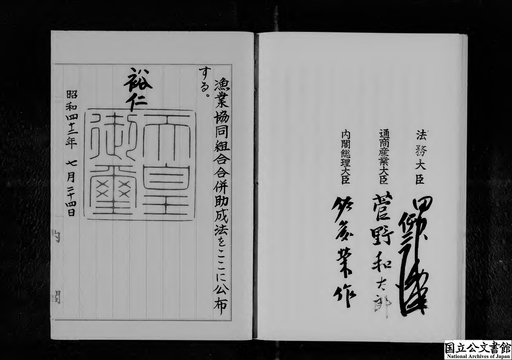 法務大臣 田中伊三次
通商産業大臣 菅野和太郎
内閣総理大臣 佐藤榮作
漁業協同組合合併助成法をここに公布
する。
裕仁
天皇
御璽
昭和四十二年 七月二十四日
国立公文書館
National Archives of Japan